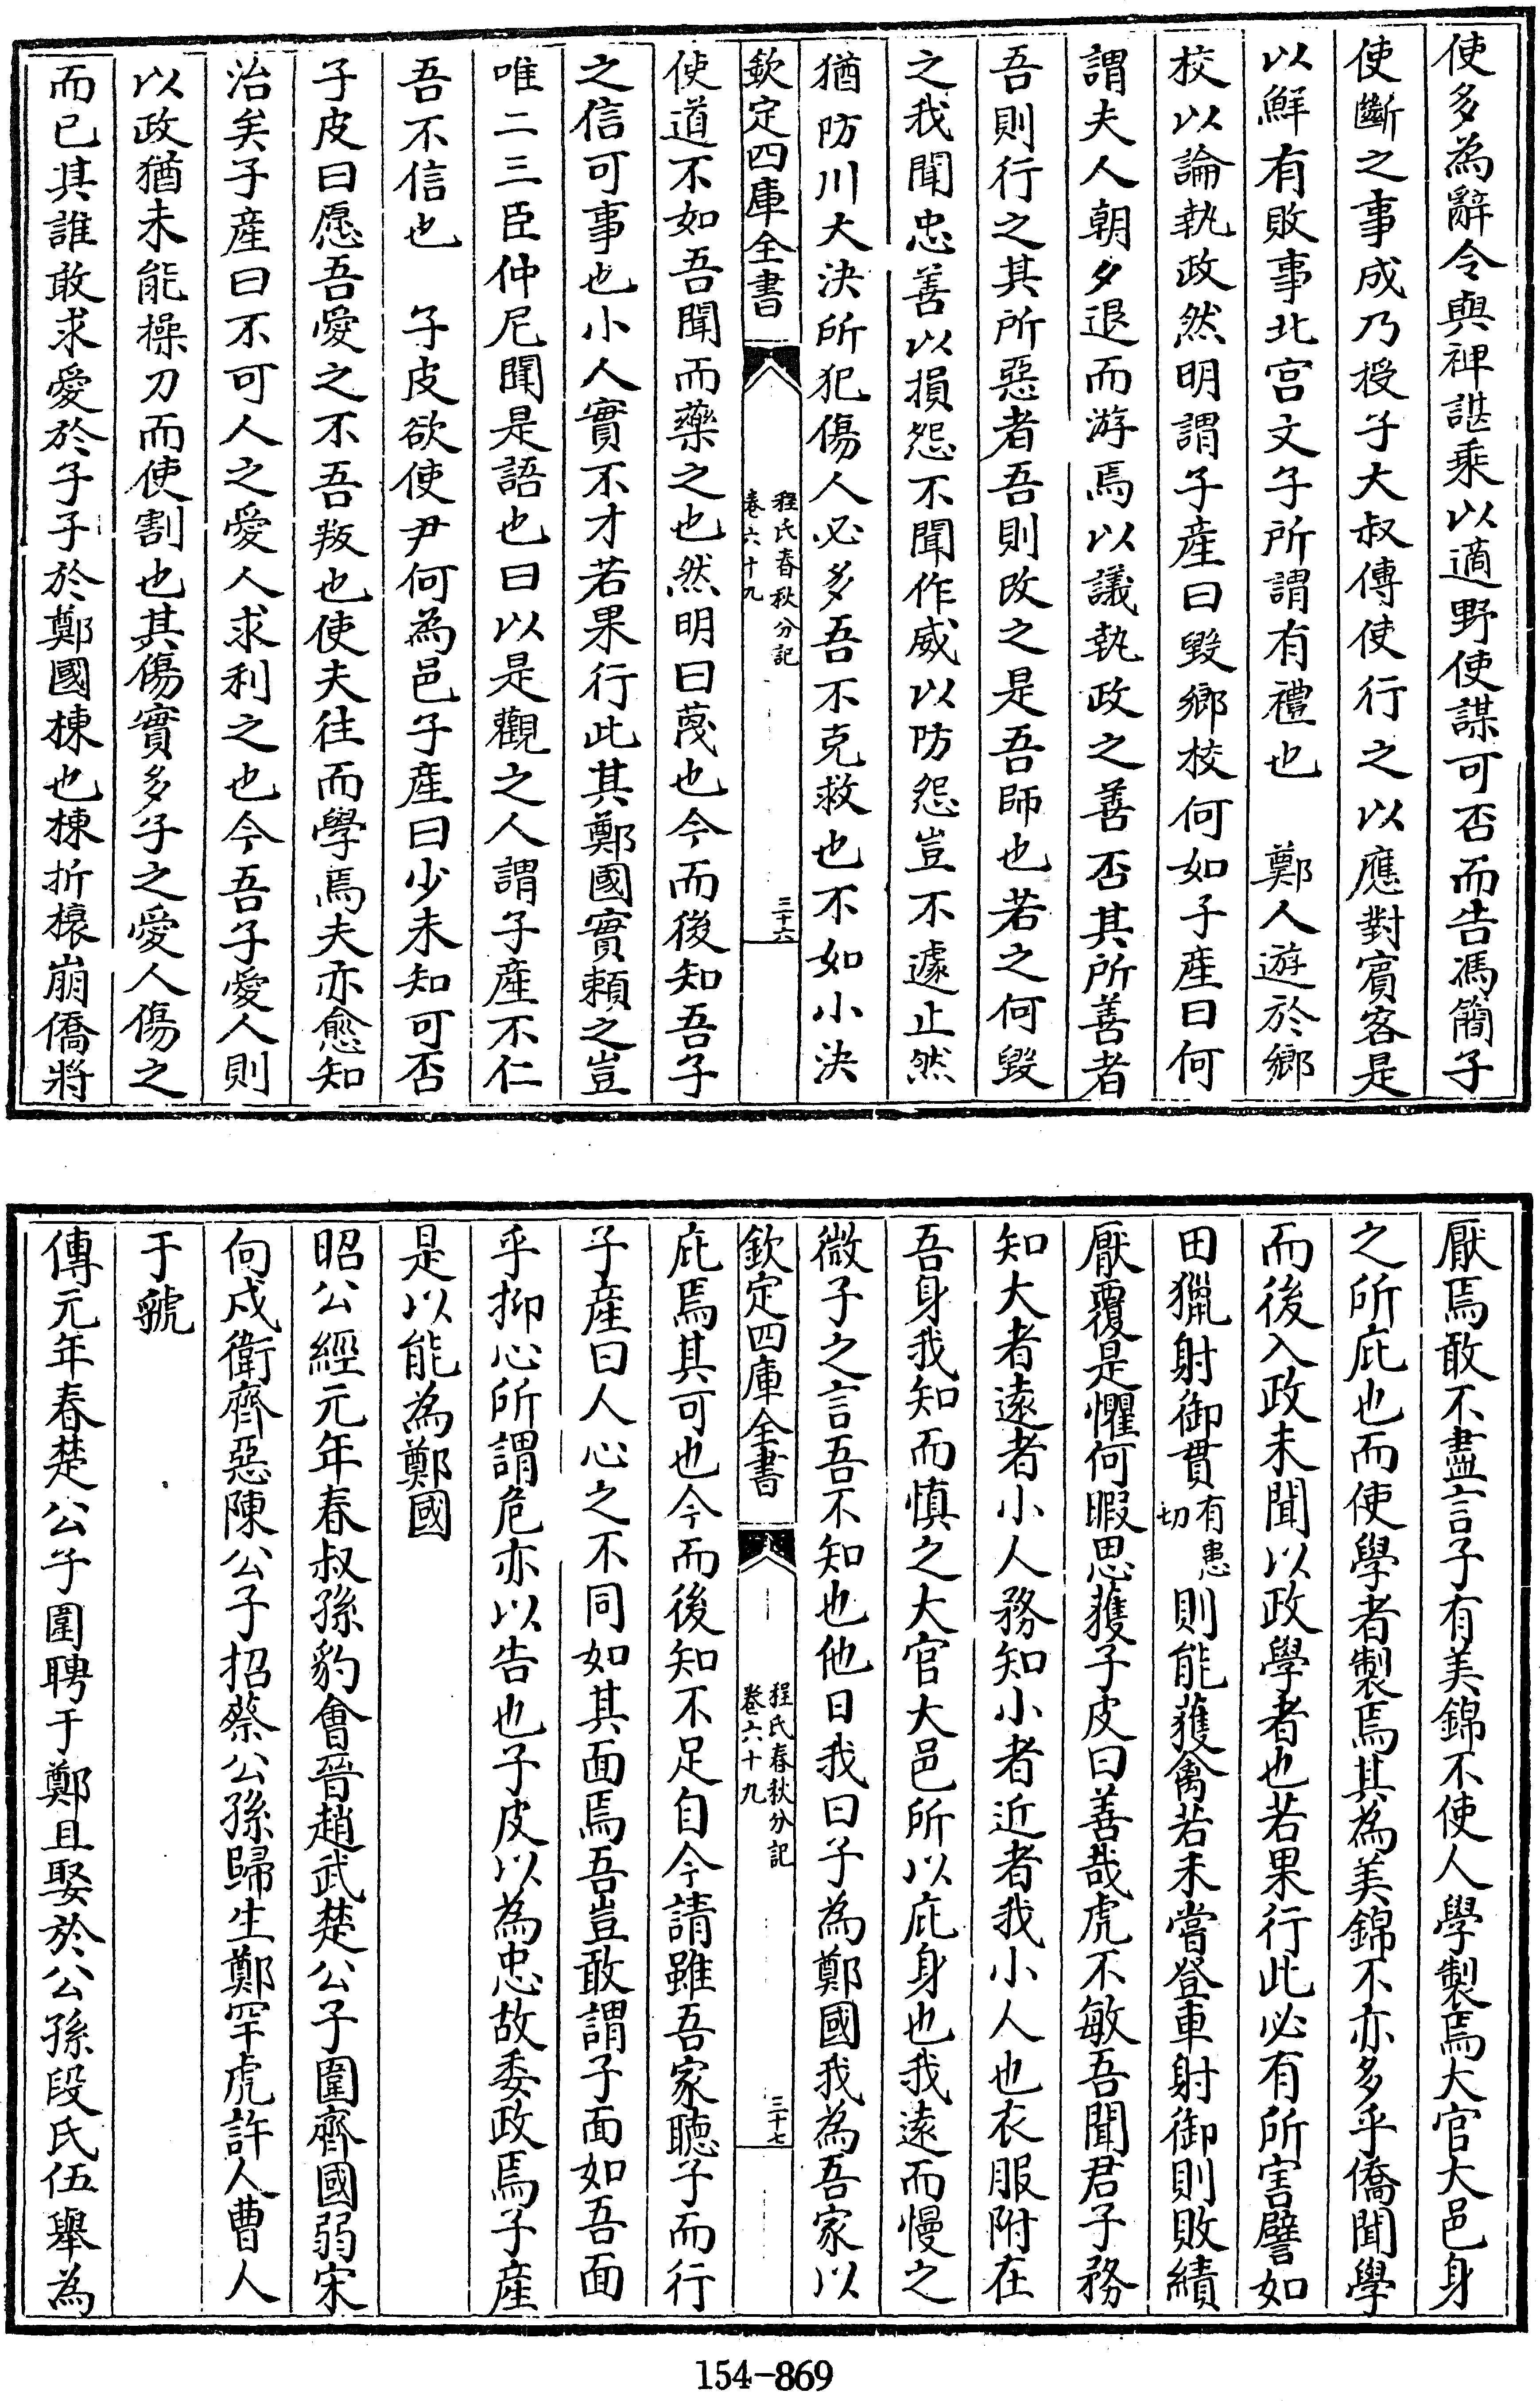 使多為辭令與裨諶乘以適野使謀可否而告馮簡子
使斷之事成乃授子大叔傳使行之以應對賓客是
以鮮有敗事北宫文子所謂有禮也　鄭人遊於鄉
校以論執政然明謂子産曰毀鄉校何如子産曰何
謂夫人朝夕退而游焉以議執政之善否其所善者
吾則行之其所惡者吾則改之是吾師也若之何毀
之我聞忠善以損怨不聞作威以防怨豈不遽止然
猶防川大決所犯傷人必多吾不克救也不如小決
欽定四庫全書
程氏春秋分記
卷六十九
三十六
使道不如吾聞而藥之也然明曰蔑也今而後知吾子
之信可事也小人實不才若果行此其鄭國實賴之豈
唯二三臣仲尼聞是語也曰以是觀之人謂子產不仁
吾不信也　子皮欲使尹何為邑子産曰少未知可否
子皮曰愿吾愛之不吾叛也使夫往而學焉夫亦愈知
治矣子産曰不可人之愛人求利之也今吾子愛人則
以政猶未能操刀而使割也其傷實多子之愛人傷之
而已其誰敢求愛於子子於鄭國棟也棟折榱崩僑將
厭焉敢不盡言子有美錦不使人學製焉大官大邑身
之所庇也而使學者製焉其為美錦不亦多乎僑聞學
而後入政未聞以政學者也若果行此必有所害譬如
田獵射御貫有患切則能獲禽若未嘗登車射御則敗績
厭覆是懼何暇思獲子皮曰善哉虎不敏吾聞君子務
知大者遠者小人務知小者近者我小人也衣服附在
吾身我知而慎之大官大邑所以庇身也我遠而慢之
微子之言吾不知也他日我曰子為鄭國我為吾家以
欽定四庫全書
程氏春秋分記
卷六十九
三十七
庇焉其可也今而後知不足自今請雖吾家聽子而行
子産曰人心之不同如其面焉吾豈敢謂子面如吾面
乎抑心所謂危亦以告也子皮以為忠故委政焉子產
是以能為鄭國
昭公經元年春叔孫豹會晉趙武楚公子圍齊國弱宋
向戌衛齊惡陳公子招蔡公孫歸生鄭罕虎許人曹人
于虢
傳元年春楚公子圍聘于鄭且娶於公孫段氏伍舉為
154-869